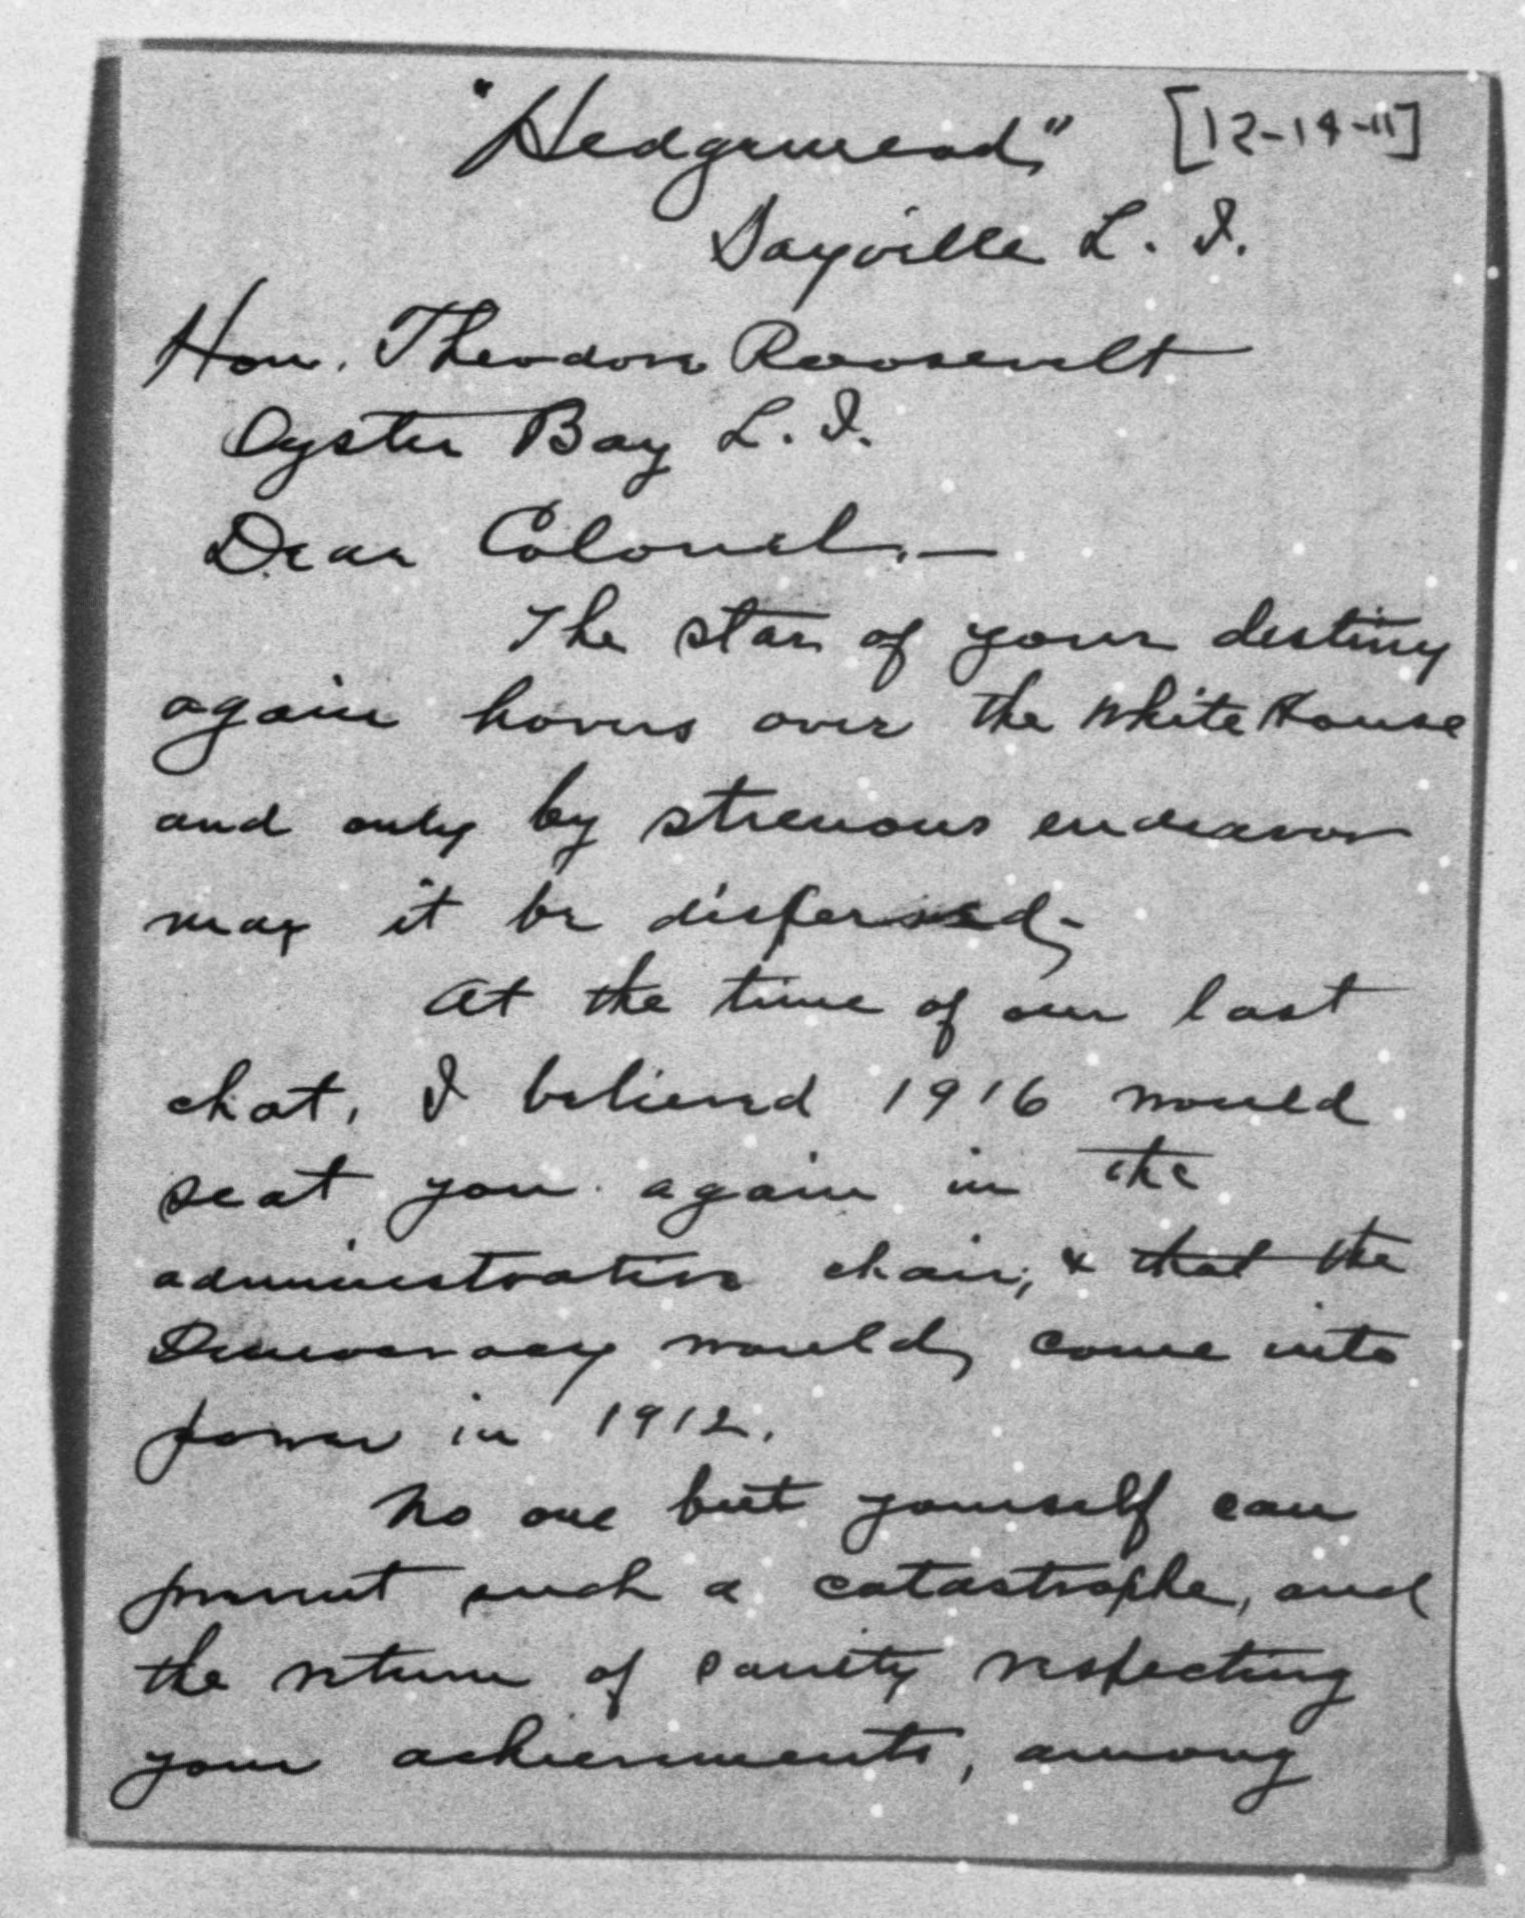 "Hedgemead," [12-14-11]
Sayville L. I.
Hon. Theodore Roosevelt
Oyster Bay L. I.
Dear Colonel,—
The star of your destiny
again hovers over the White House
and only by strenuous endeavor
may it be dispersed,
At the time of our last
chat, I believed 1916 would
seat you again in the
administrative chair, & that the
Democracy would, come into
power in 1912.
No one but yourself can
prevent such a catastrophe, and
the return of sanity respecting
your achievements, among